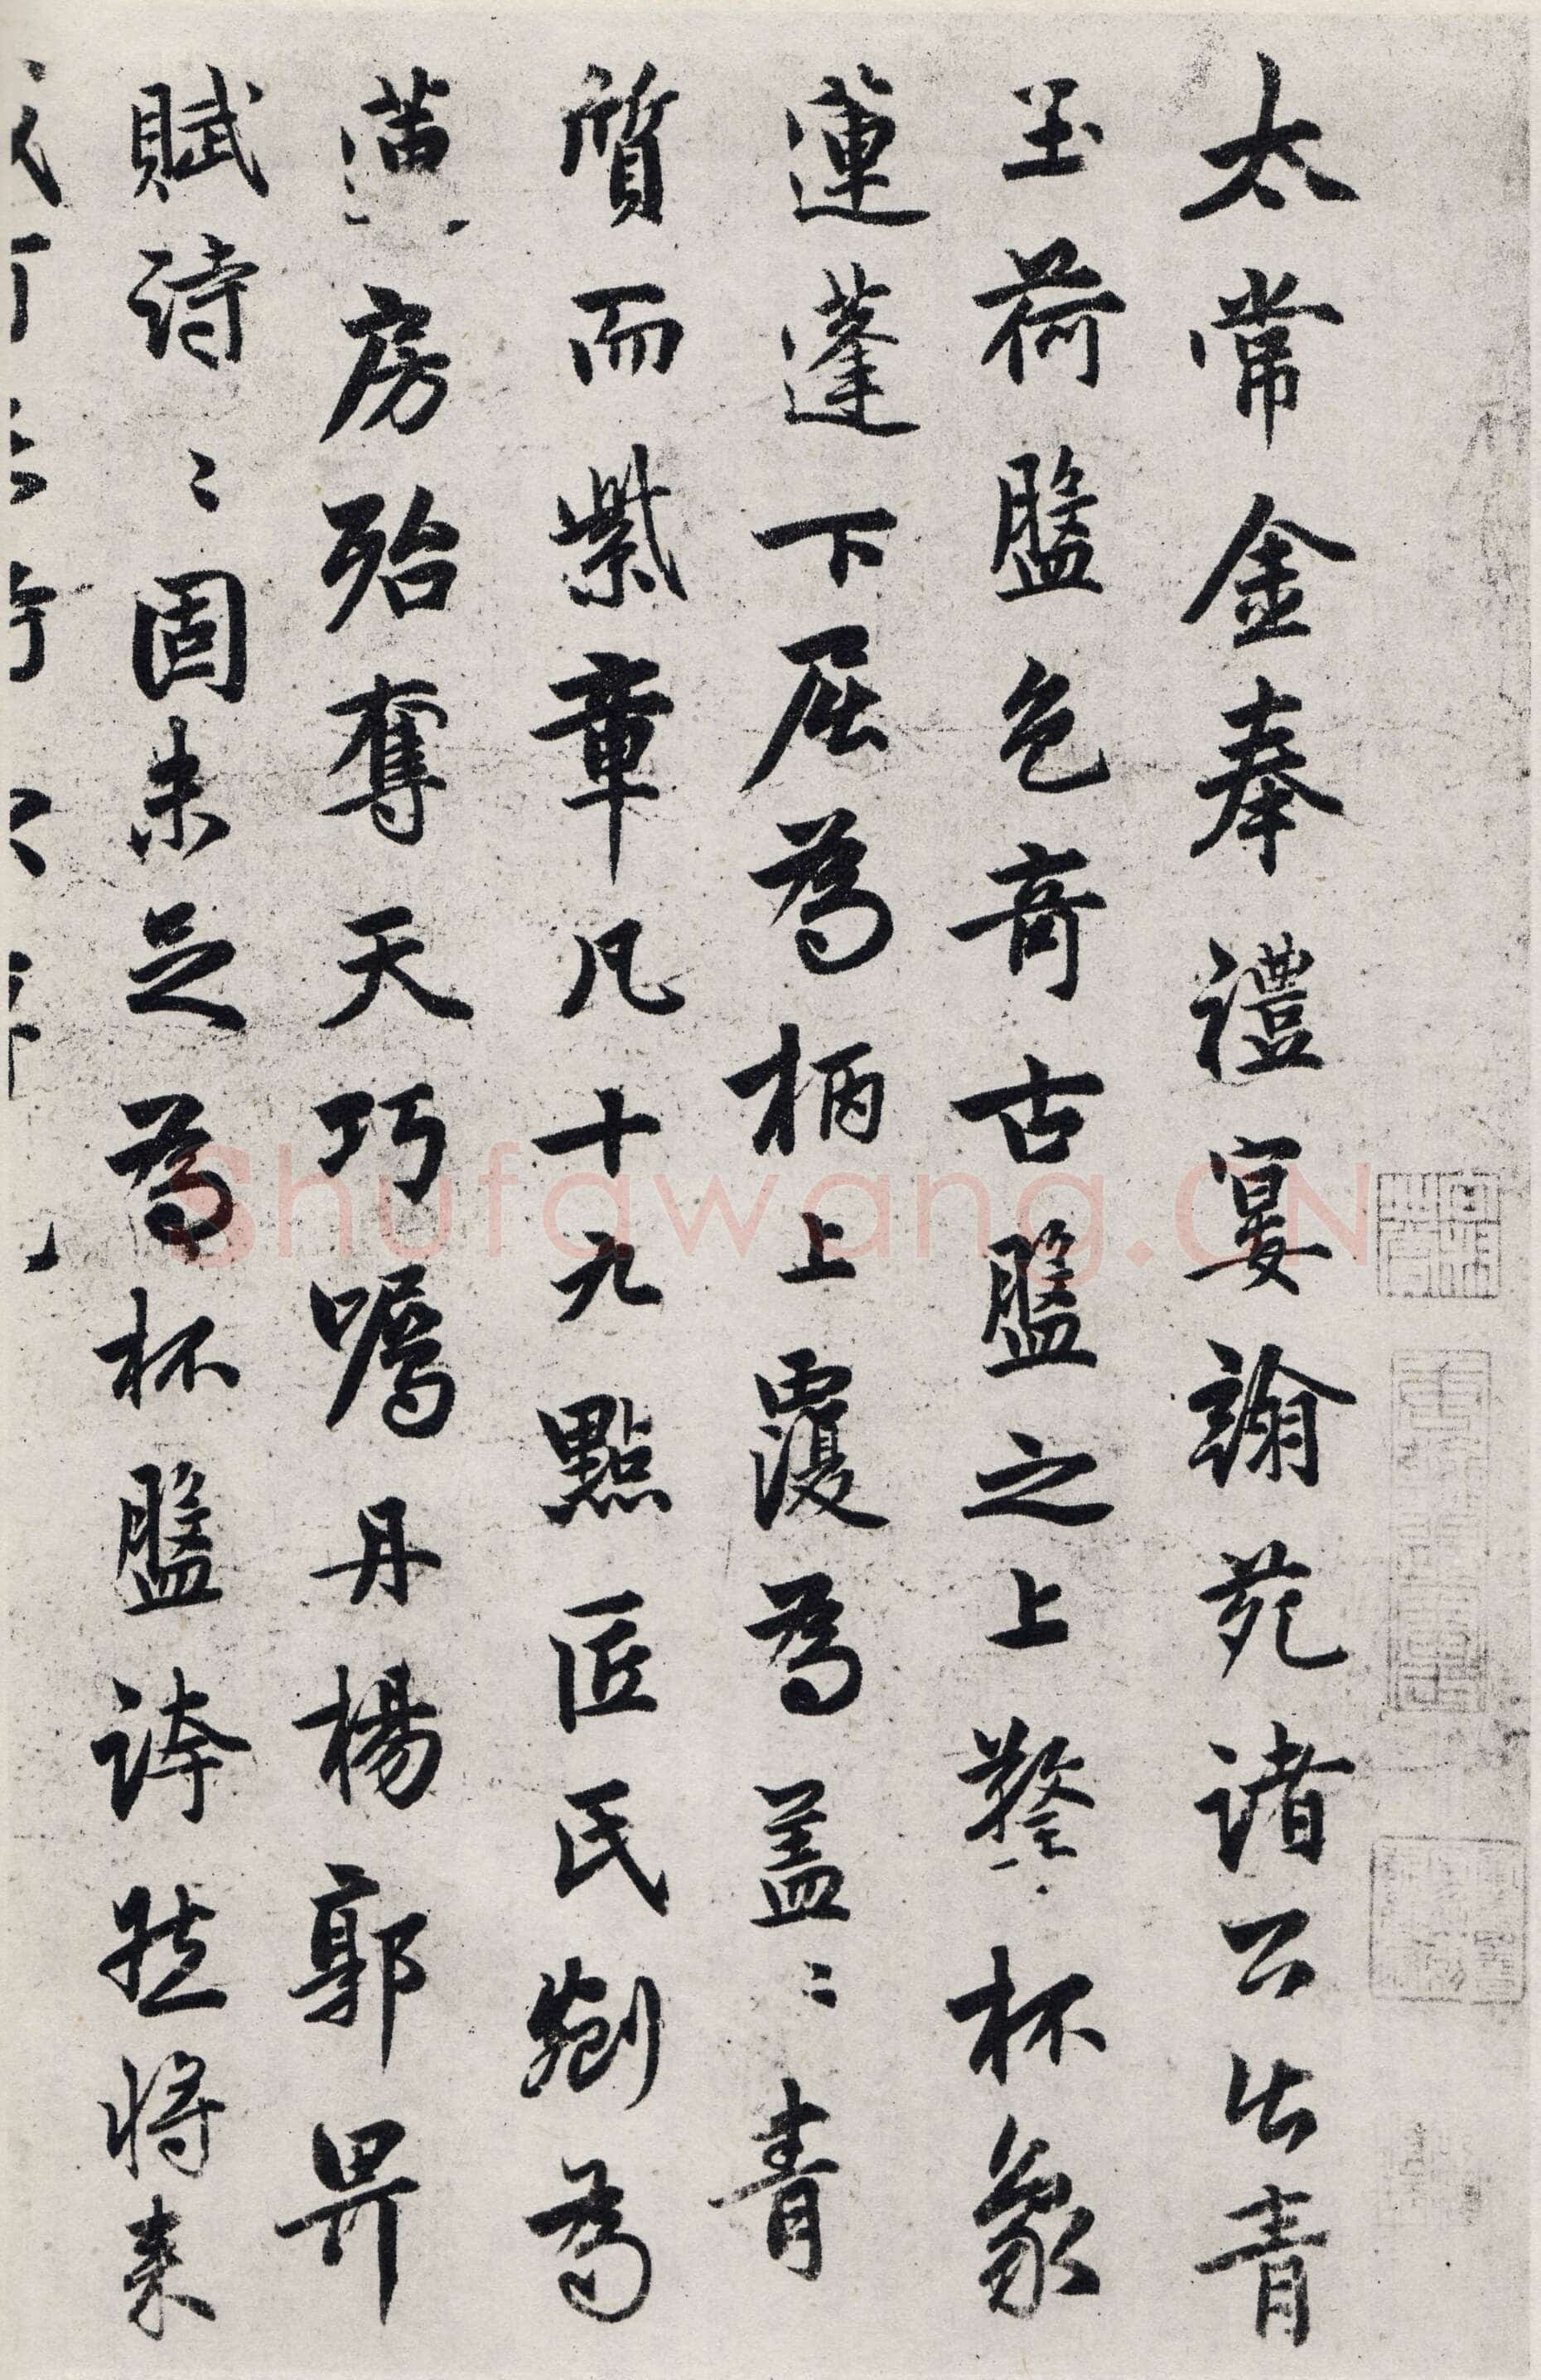 太常金奉禮宴翰苑諸公出青
玉荷盤色奇古盤之上擎杯象
蓮蓬下屈為柄上覆為蓋〻青
質而紫章凡十九點匠氏劚為
房殆奪天巧囑丹楊郭畀
賦詩〻固未足為杯盤誇然將來
Shufawang.CN